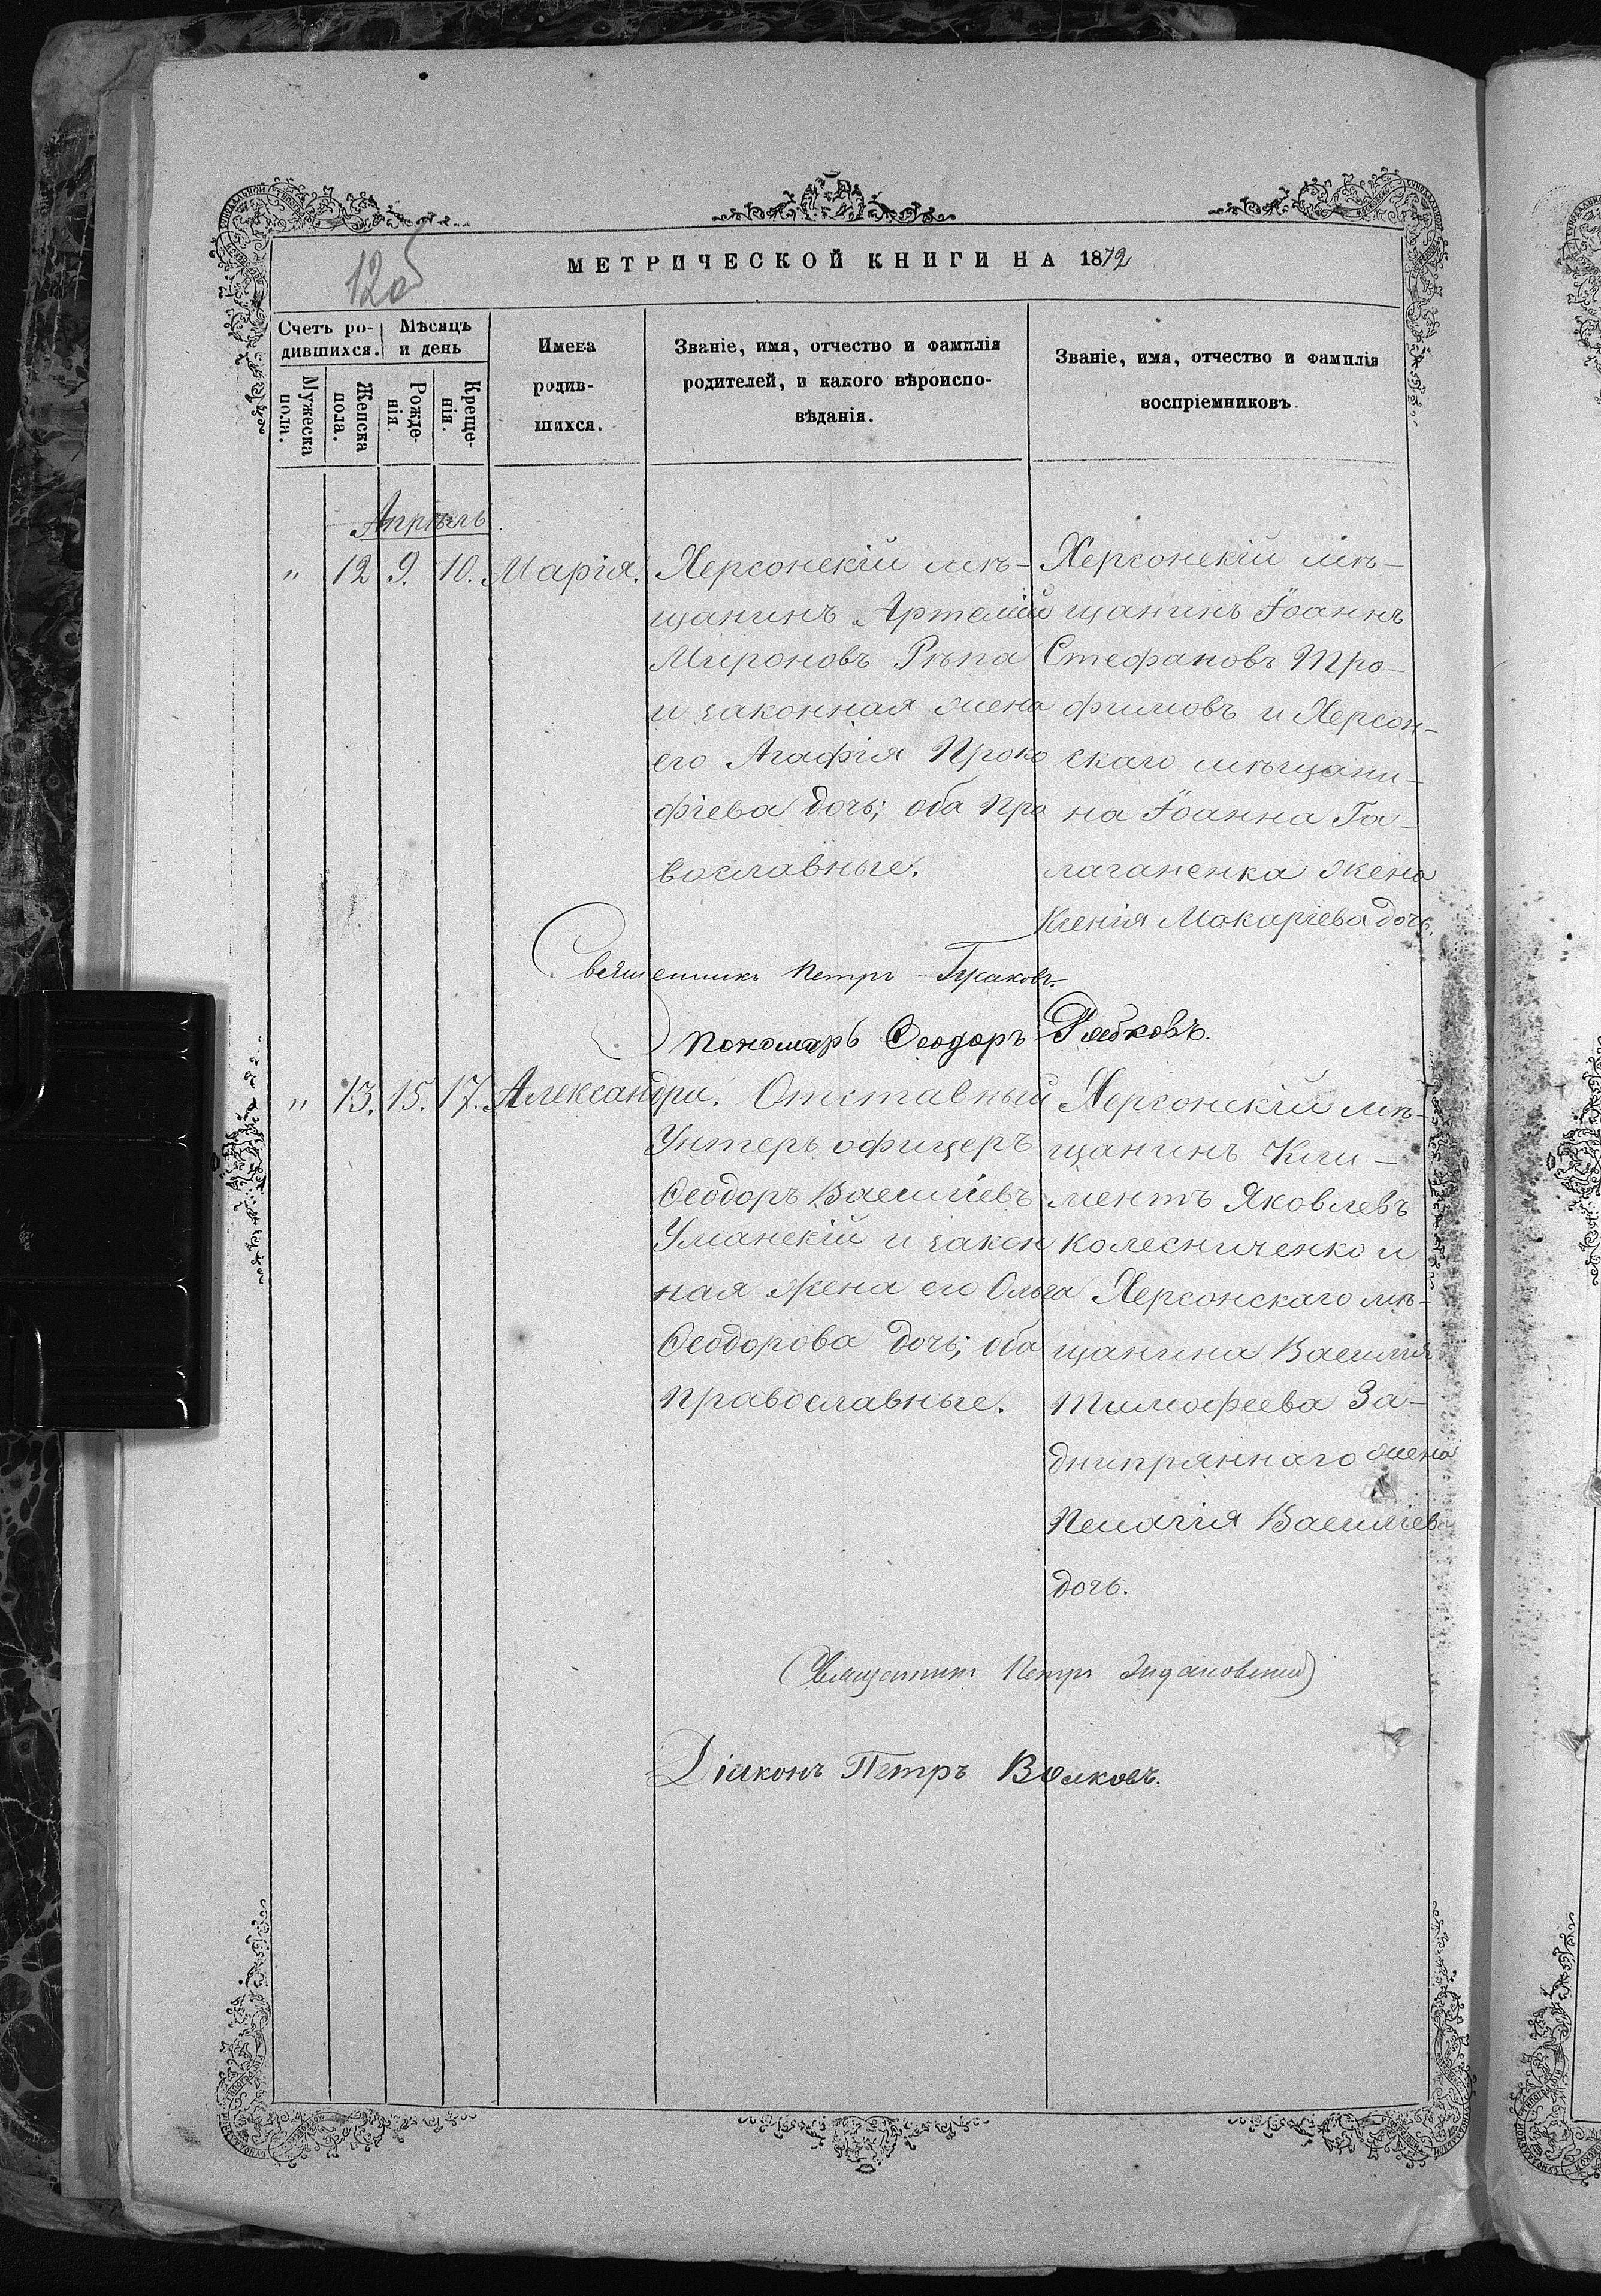 12об
МЕТРИЧЕСКОЙ КНИГИ НА 1872
Счетъ ро-
дившихся.
Мѣсяцъ
и день
Мужеска
пола.
Женска
пола.
Рожде-
нія.
Креще-
нія.
Имена
родив-
шихся.
Званіе, имя, отчество и фамилія
родителей, и какого вѣроиспо-
вѣданія.
Званіе, имя, отчество и фамилія
воспріемниковъ.
Апрѣль
" 12 9. 10. Марія.
Херсонскій мѣ-
щанинъ Артемій
Мироновъ Рѣпа
и законная жена
его Агафія Проко
фіева дочь; оба пра
вославные.
Херсонскій мѣ-
щанинъ Іоаннъ
Стефановъ Тро-
фимовъ и Херсон-
скаго мѣщани-
на Іоанна Га-
лаганенка жена
Ксенія Макаріева дочь.
Священникъ Петръ
Пономарь Ѳеодоръ Рябковъ.
" 13. 15. 17. Александра.
Отставный
Унтеръ офицеръ
Ѳеодоръ Василіевъ
Уманскій и закон
ная жена его Ольга
Ѳеодорова дочь; оба
православные.
Херсонскій мѣ-
щанинъ Кли-
ментъ Яковлевъ
Колесниченко и
Херсонскаго мѣ-
щанина Василія
Тимофеева За-
днипряннаго жена
Пелагія Василіева
дочь.
Священникъ Петръ
Діаконъ Петръ Волковъ.